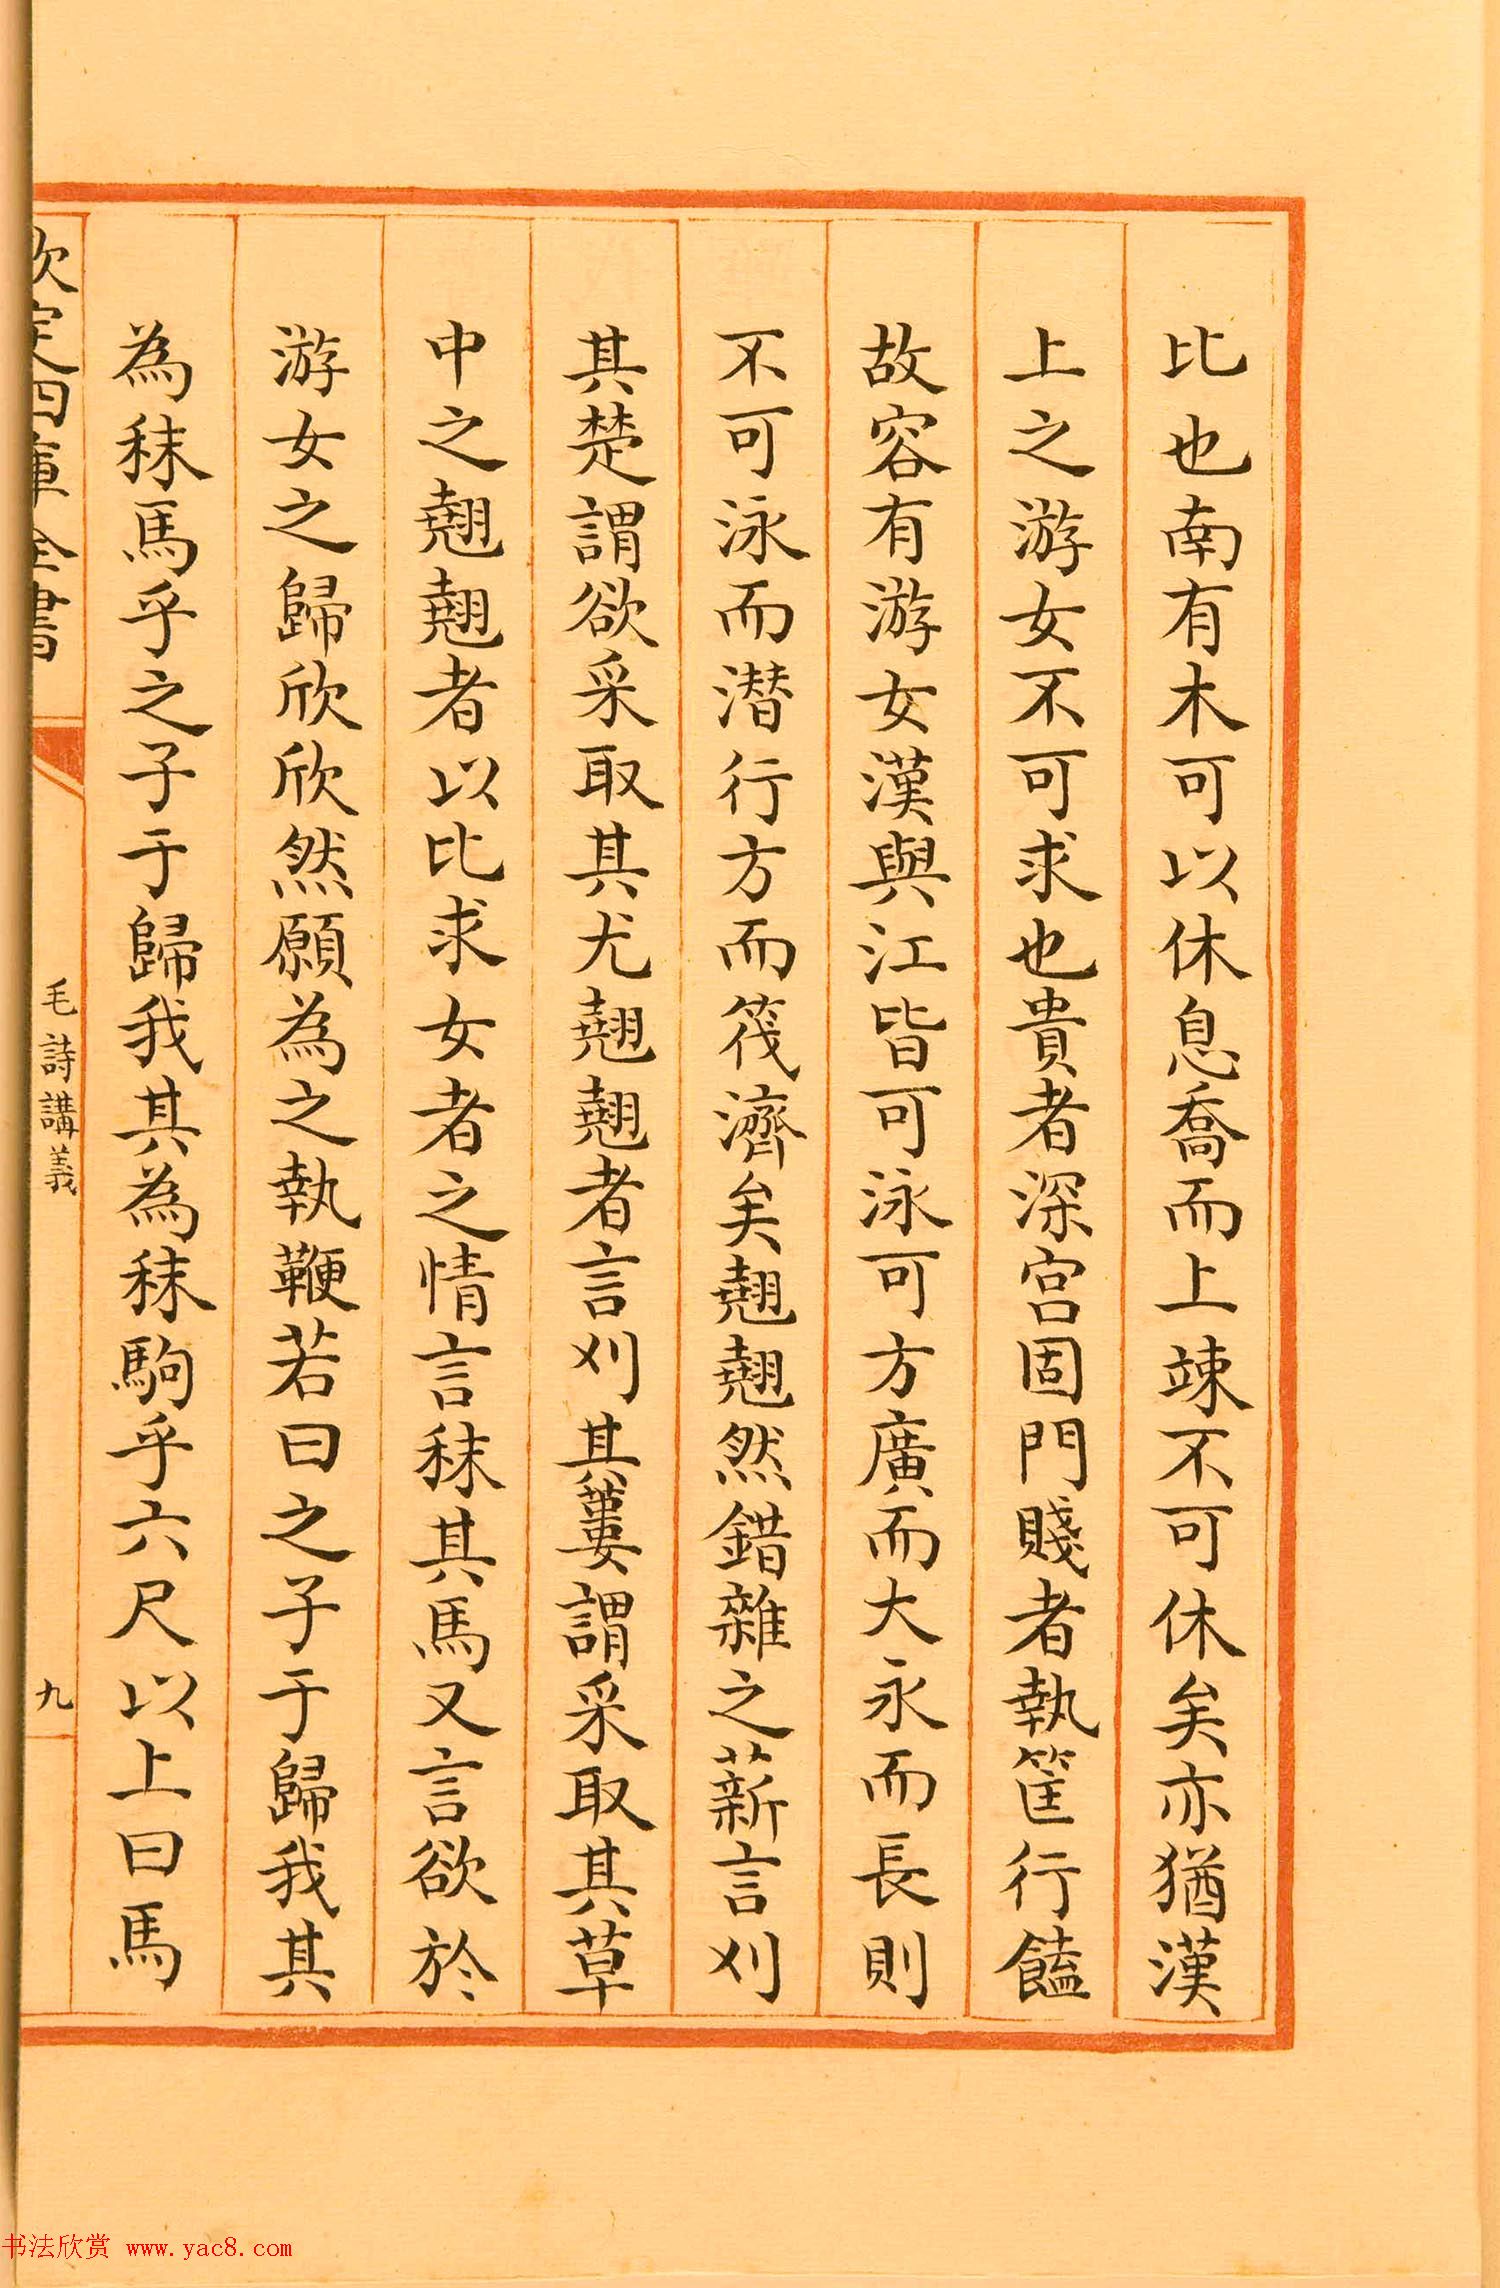 比也南有木可以休息喬而上竦不可休矣亦猶漢
上之游女不可求也貴者深宮固門賤者執筐行饁
故容有游女漢與江皆可泳可方廣而大永而長則
不可泳而潛行方而筏濟矣翹翹然錯雜之薪言刈
其楚謂欲采取其尤翹翹者言刈其蔞謂采取其草
中之翹翹者以比求女者之情言秣其馬又言欲於
游女之歸欣欣然願為之執鞭若曰之子于歸我其
為秣馬乎之子于歸我其為秣駒乎六尺以上曰馬
欽定四庫全書
毛詩講義
九
书法欣赏 www.yac8.com